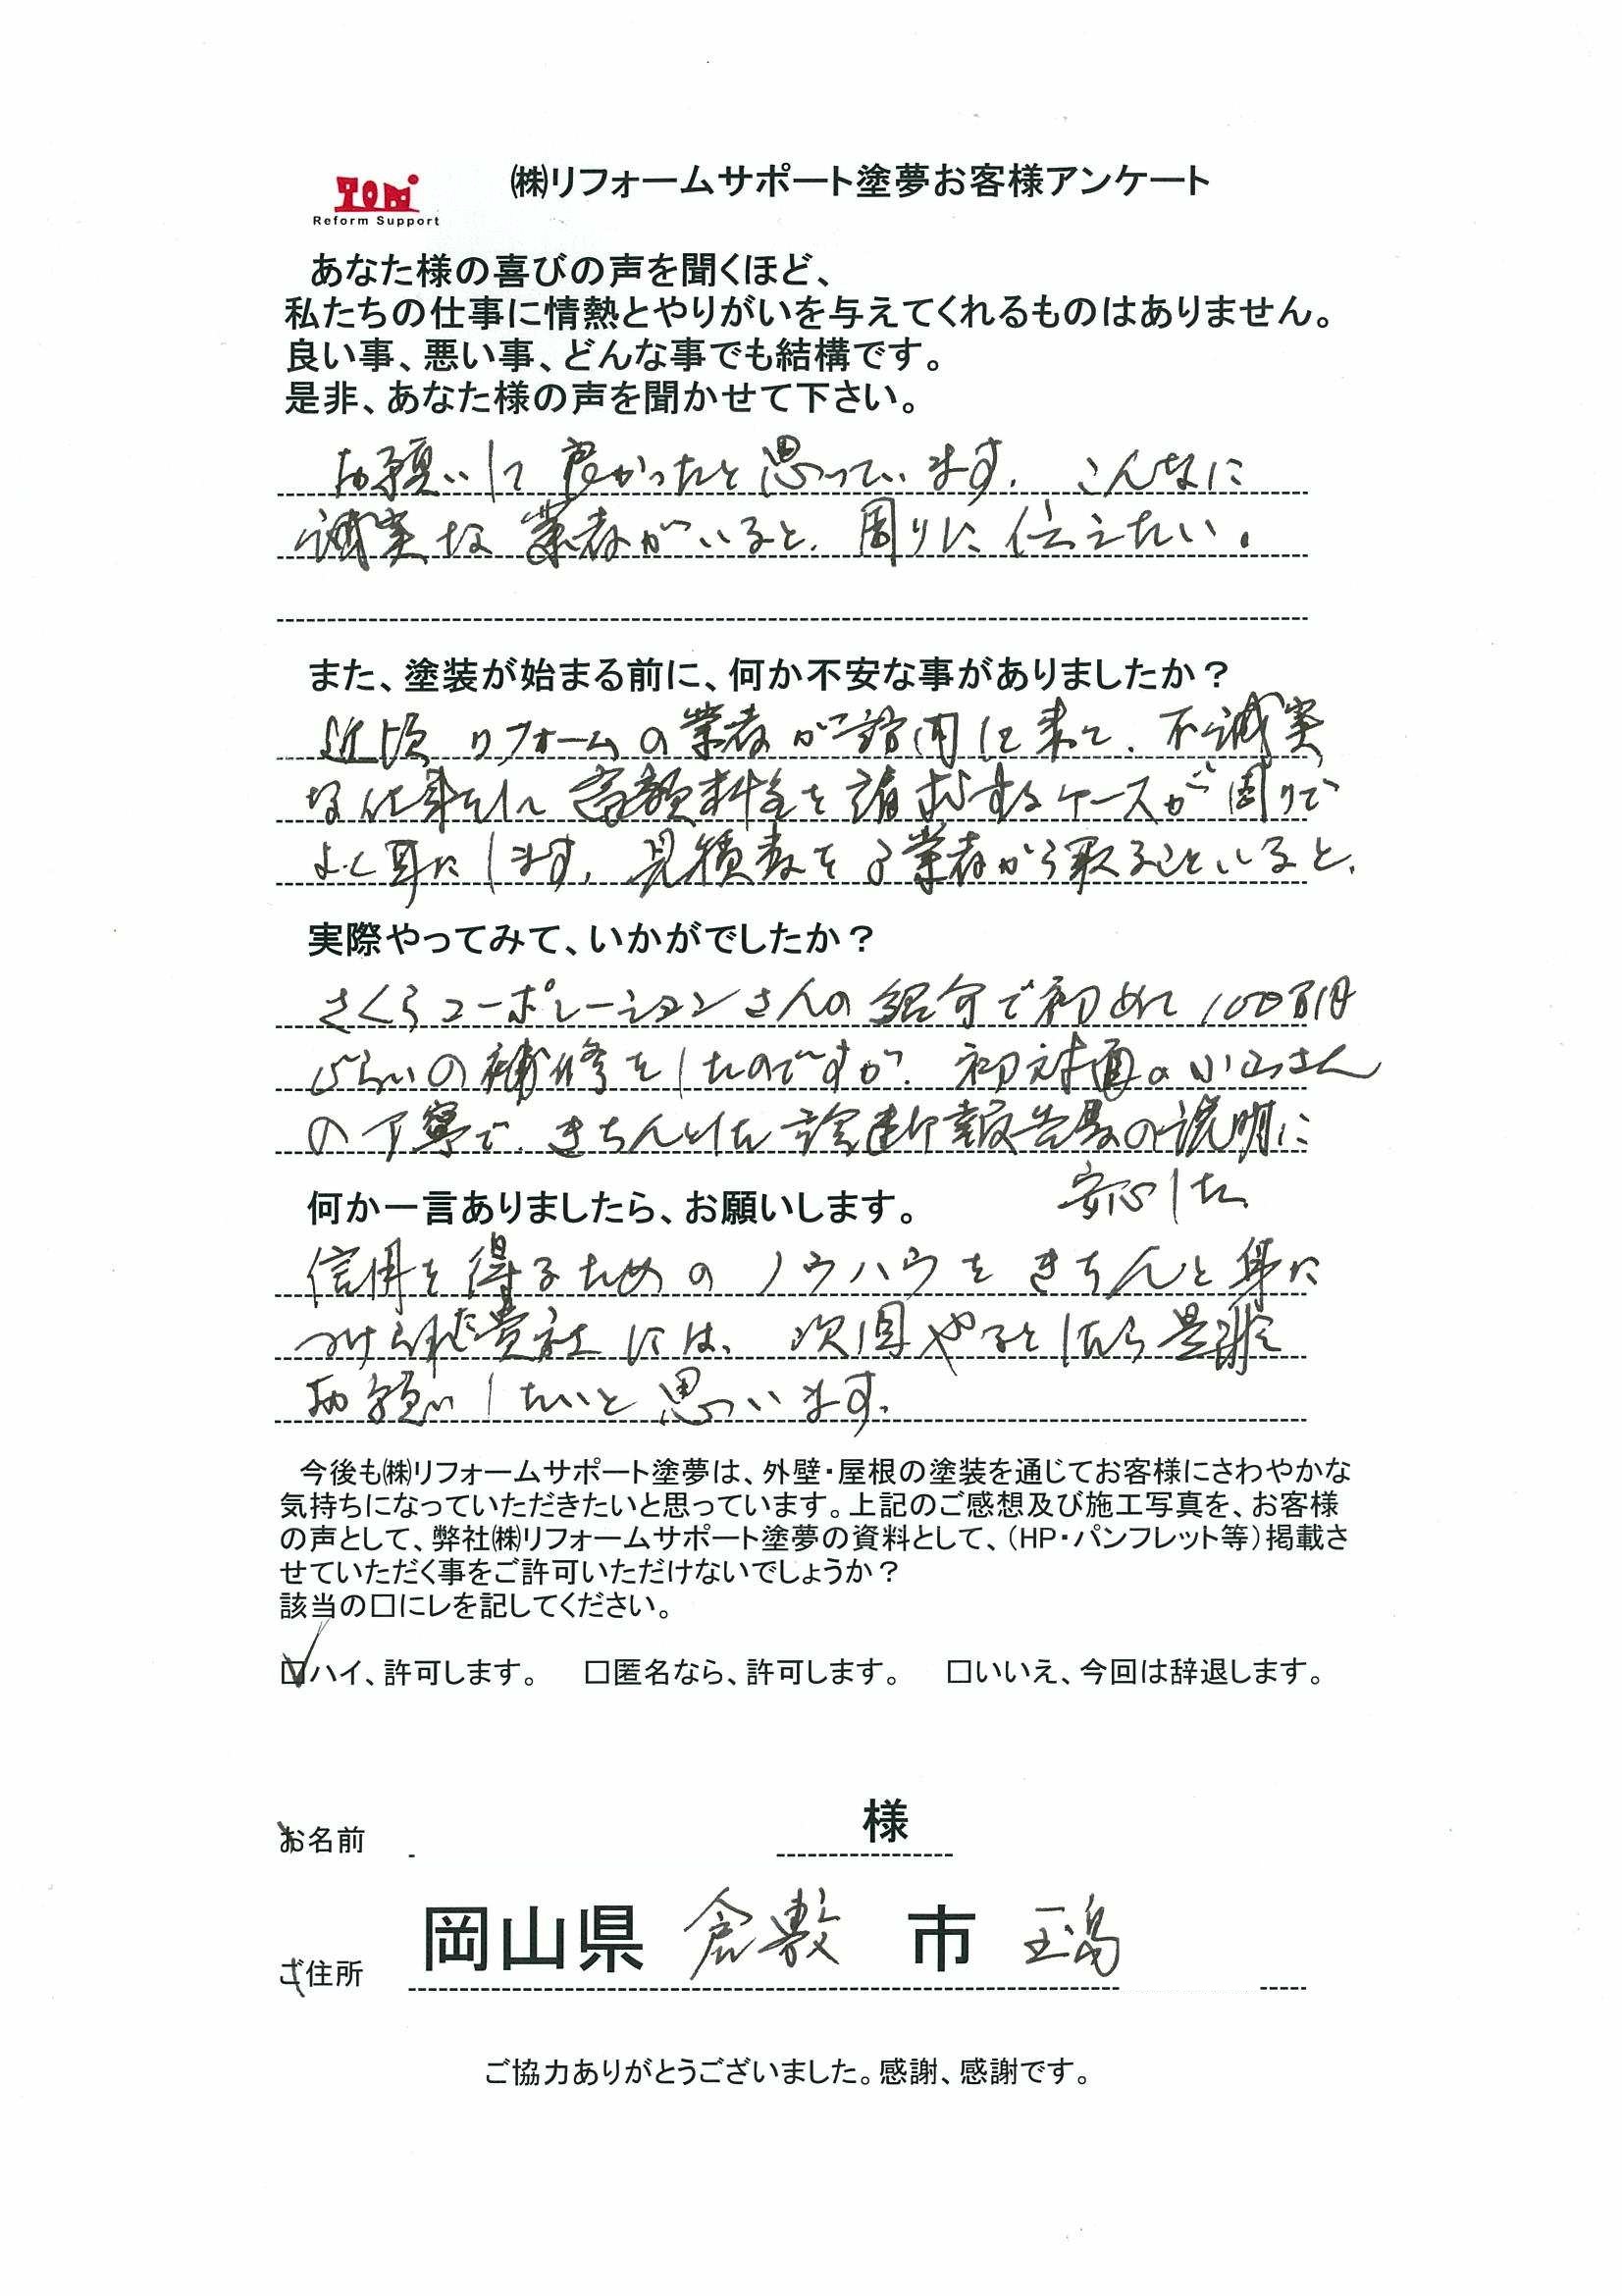 TOM
Reform Support
㈱リフォームサポート塗夢お客様アンケート
あなた様の喜びの声を聞くほど、
私たちの仕事に情熱とやりがいを与えてくれるものはありません。
良い事、悪い事、どんな事でも結構です。
是非、あなた様の声を聞かせて下さい。
お願いして良かったと思っています。こんなに
誠実な業者がいると、周りに伝えたい。
また、塗装が始まる前に、何か不安な事がありましたか？
近頃リフォームの業者が訪問して来て、不誠実
な仕事をして高額料金を請求するケースが周りで
よく耳にします。見積書を 業者から取るといいると、
実際やってみて、いかがでしたか？
さくらコーポレーションさんの紹介で初めて100万円
ぐらいの補修をしたのですが、初対面の小山さん
の丁寧で、きちんとした診断報告書の説明に
安心した
何か一言ありましたら、お願いします。
信用を得るためのノウハウをきちんと身に
つけられた貴社には、次回やるとしたら是非
お願いしたいと思っいます。
今後も㈱リフォームサポート塗夢は、外壁・屋根の塗装を通じてお客様にさわやかな
気持ちになっていただきたいと思っています。上記のご感想及び施工写真を、お客様
の声として、弊社㈱リフォームサポート塗夢の資料として、（HP・パンフレット等）掲載さ
せていただく事をご許可いただけないでしょうか？
該当の□にレを記してください。
☑ハイ、許可します。 □匿名なら、許可します。 □いいえ、今回は辞退します。
お名前 様
ご住所 岡山県 倉敷 市 玉島
ご協力ありがとうございました。感謝、感謝です。